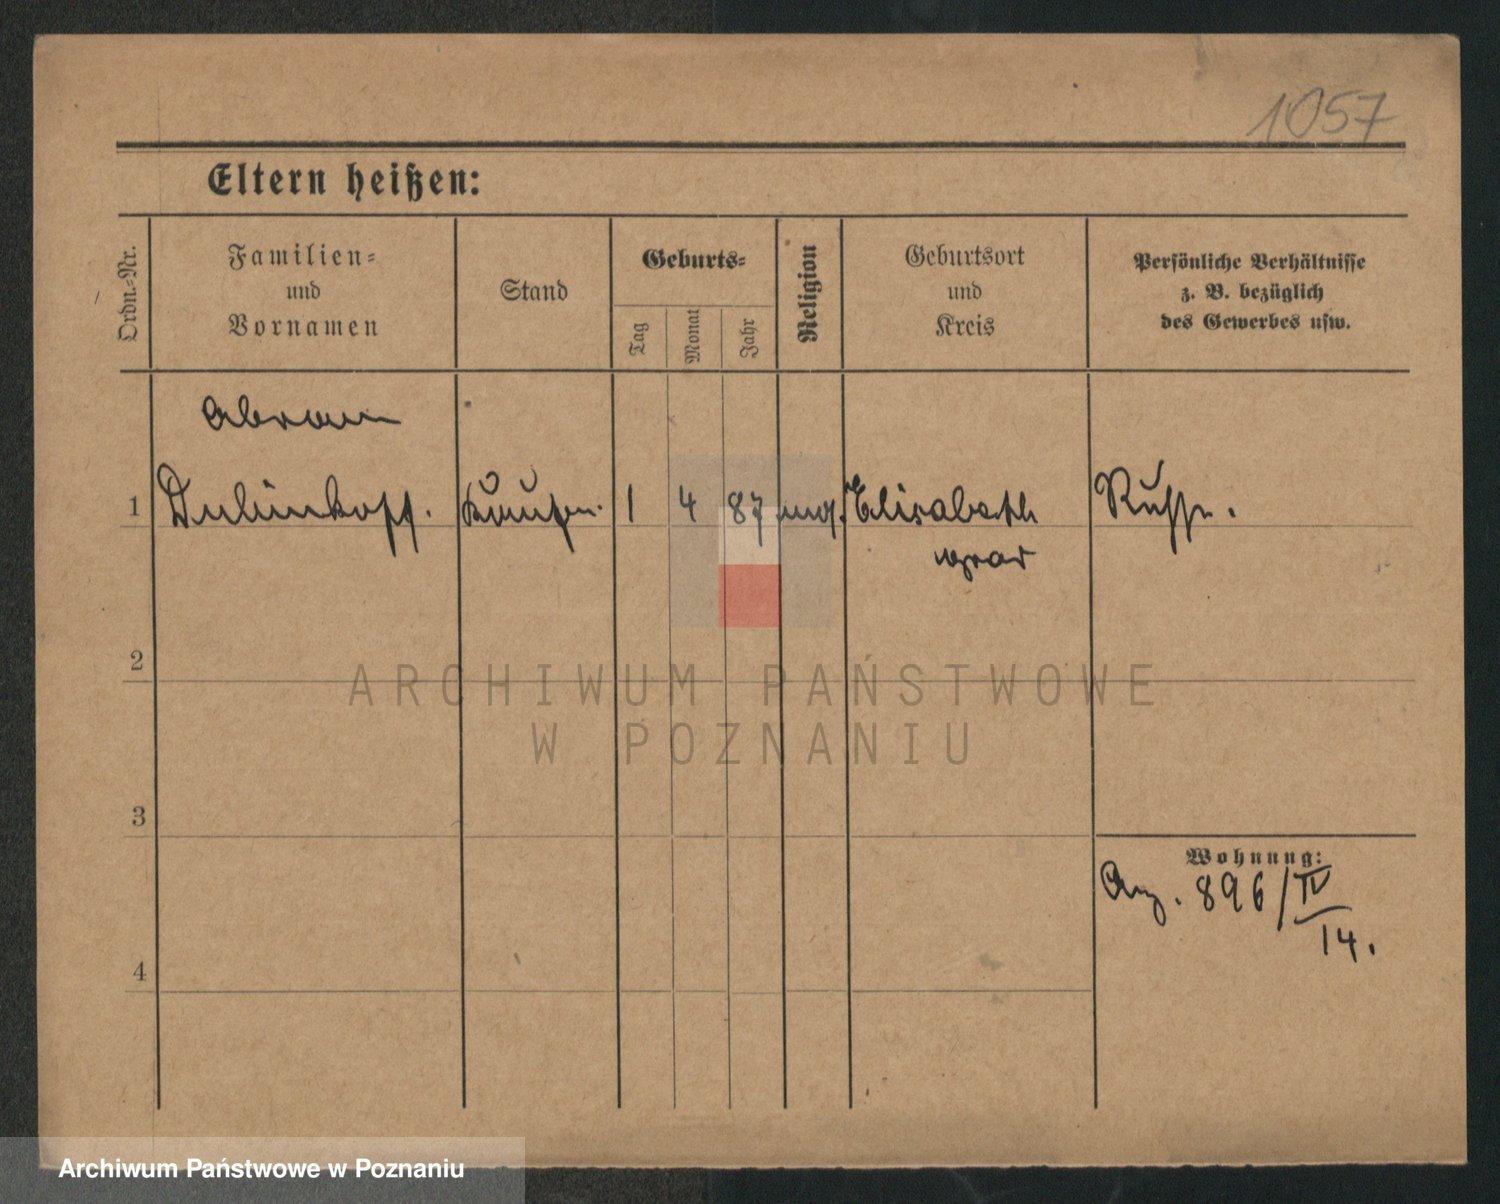 1057
Eltern heißen:
Ordn.-Nr.
Familien-
und
Vornamen
Stand
Geburts-
Tag
Monat
Jahr
Religion
Geburtsort
und
Kreis
Persönliche Verhältnisse
z. B. bezüglich
des Gewerbes usw.
Abram
1
1 4 87 Elisabeth
grad
Russe.
2
ARCHIWUM PAŃSTWOWE
W POZNANIU
3
Wohnung:
Ang. 896/IV
14.
4
Archiwum Państwowe w Poznaniu